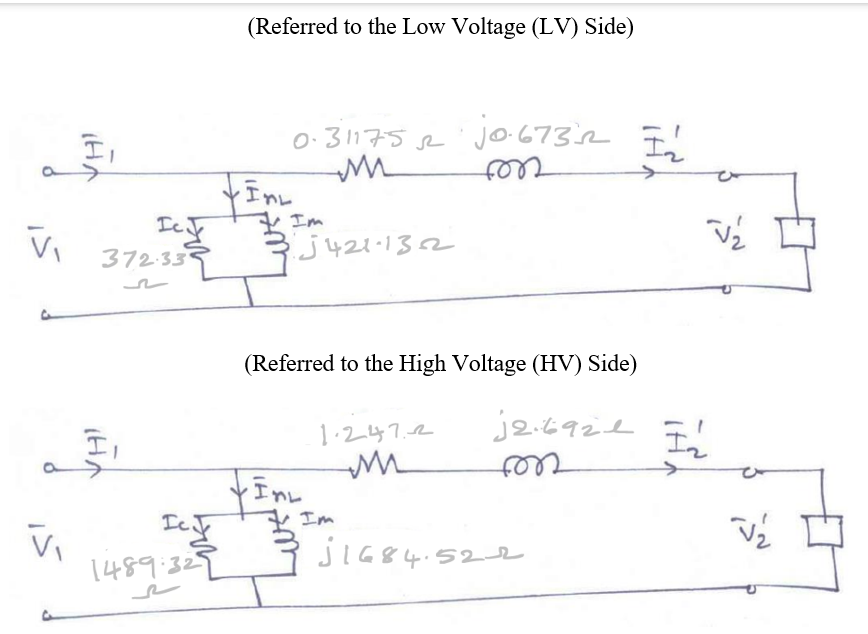 (Referred to the Low Voltage (LV) Side)
0.31175 Ω j0.673Ω
Ī₁ Ī₂'
ĪnL
Ic Im
V̄₁ 372.33 Ω j421.13Ω V̄₂'
(Referred to the High Voltage (HV) Side)
1.247Ω j2.692Ω
Ī₁ Ī₂'
ĪnL
Ic Im
V̄₁ 1489.32 Ω j1684.52Ω V̄₂'